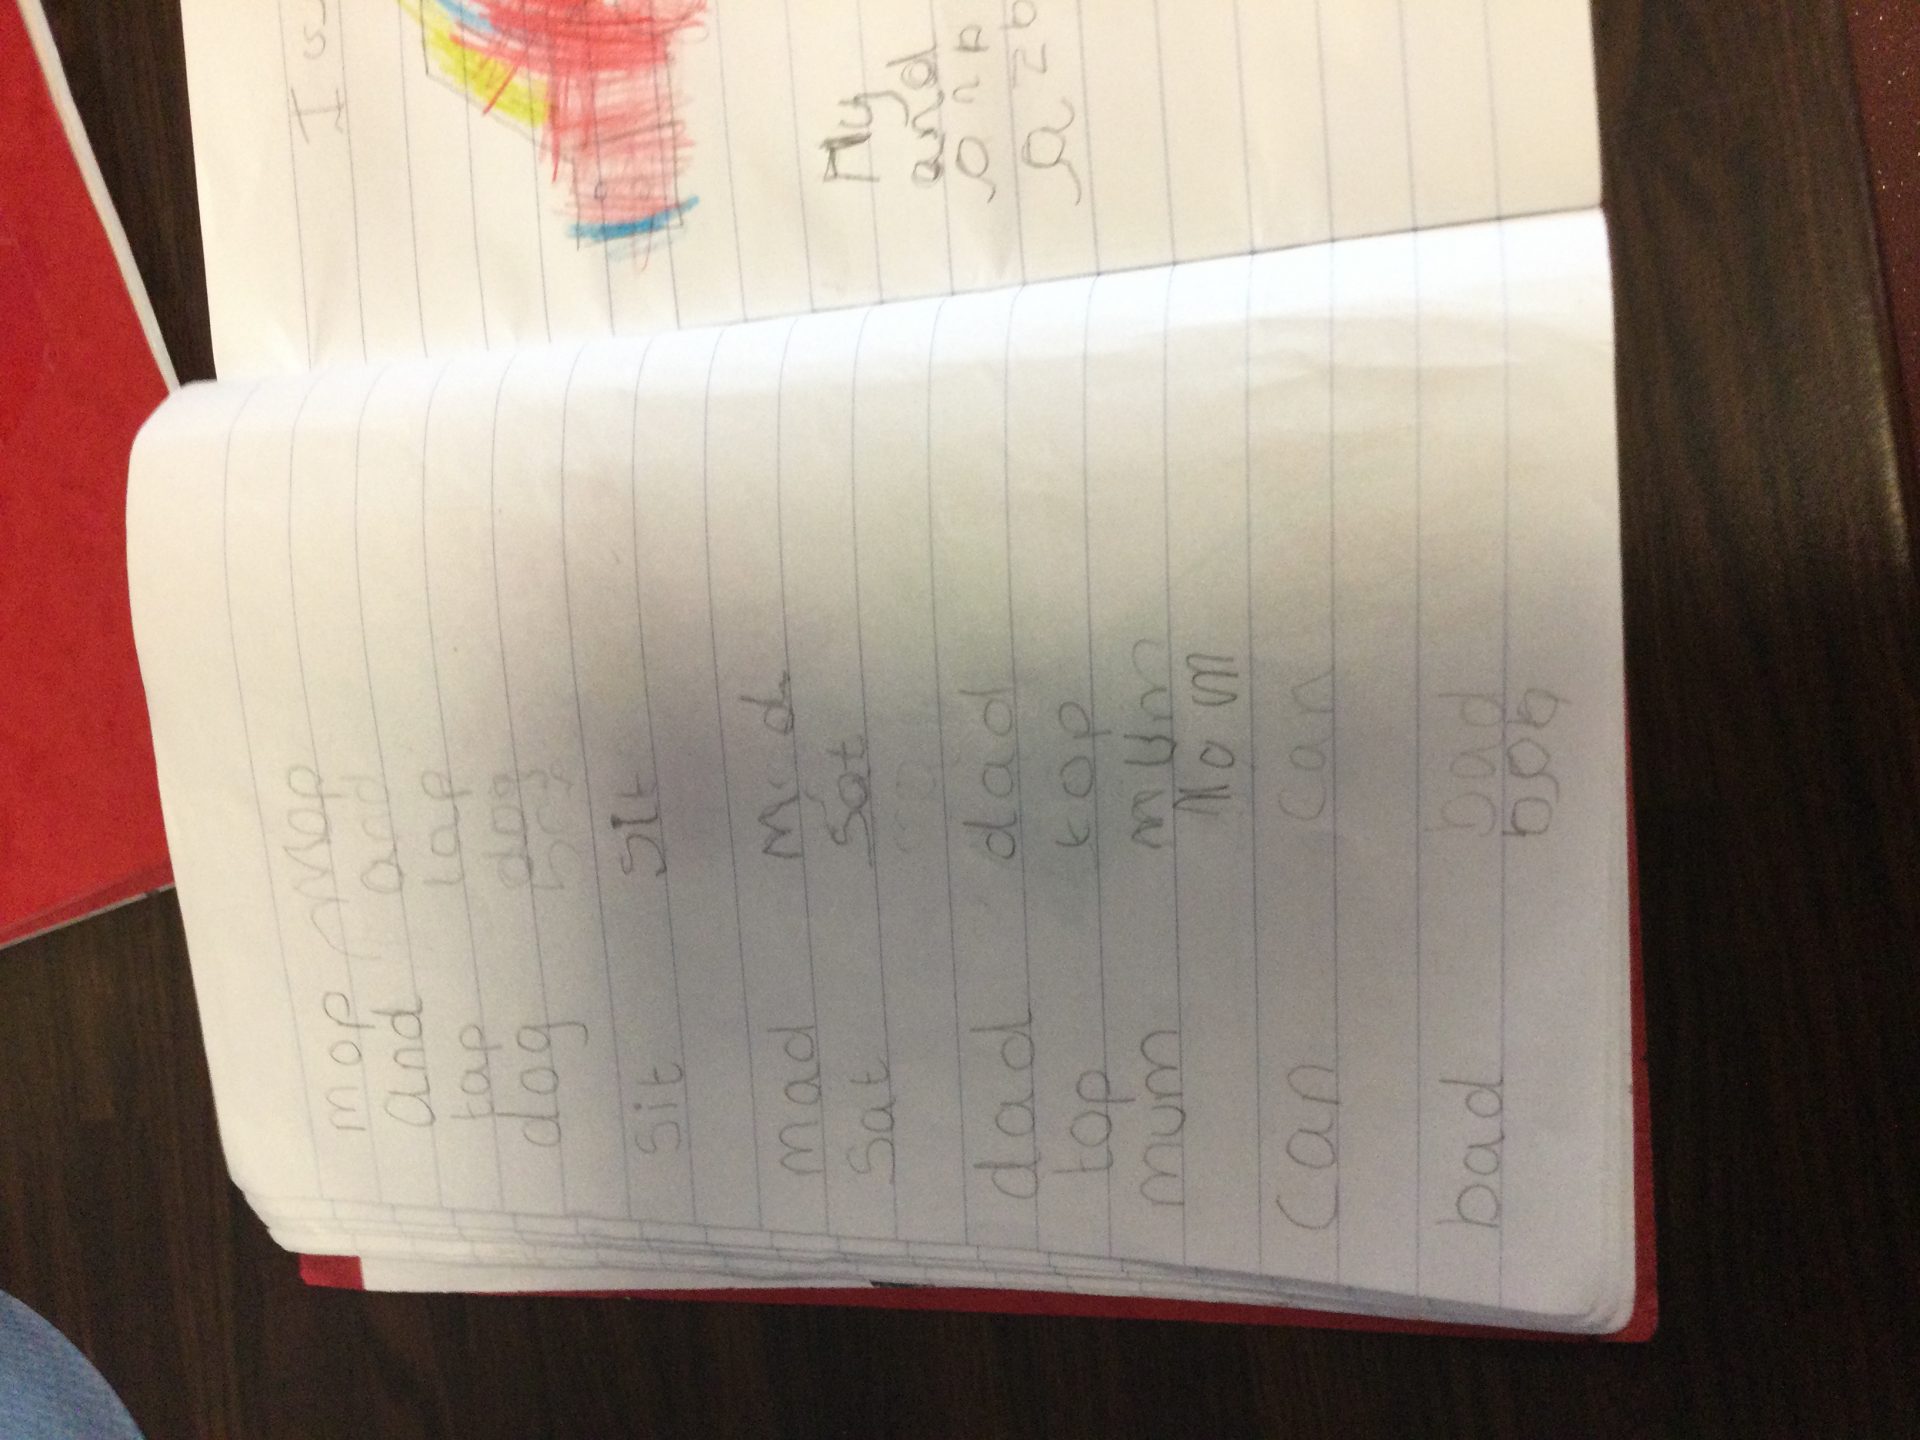 mop mop
and and
tap tap
dog dog
sit sit
mad
sat sat
dad dad
top top
mum mum
can can
bad bad
I
My
and